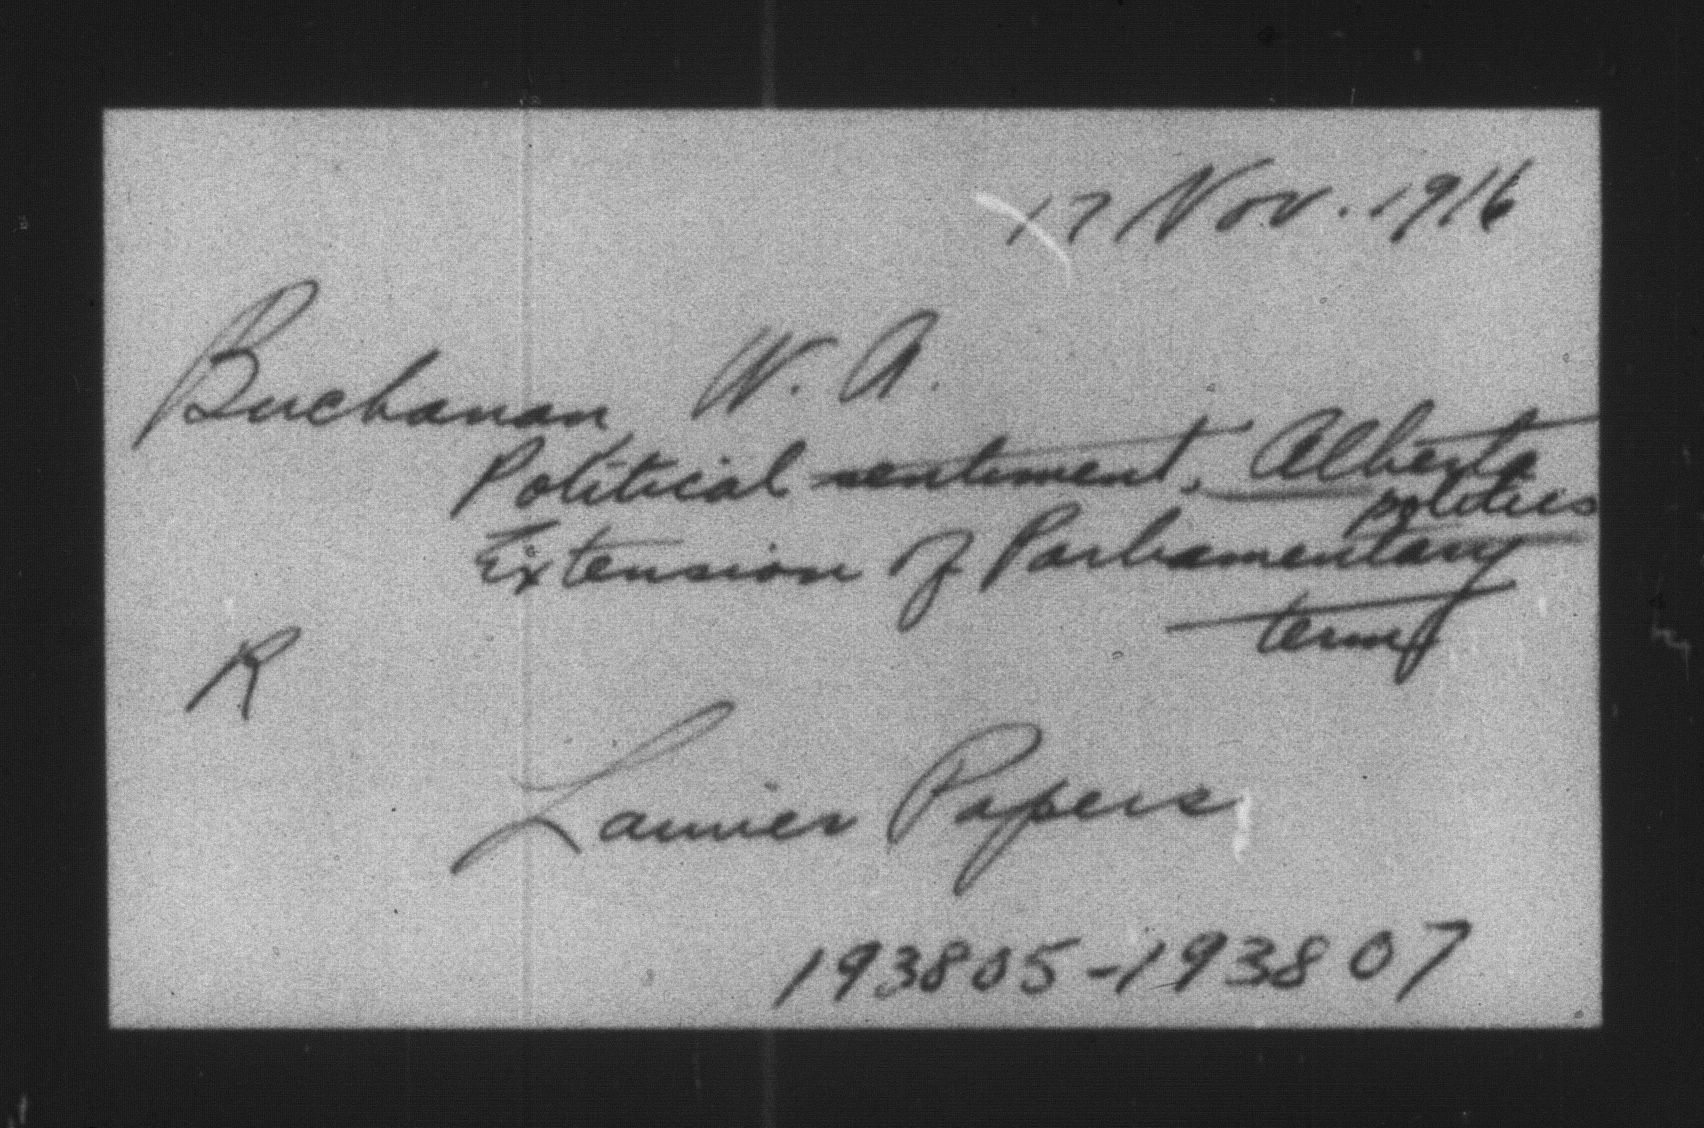 17 Nov. 1916
Buchanan W. A.
Political sentiment, Alberta
politics
Extension of Parliamentary
term
R
Laurier Papers
193805-193807